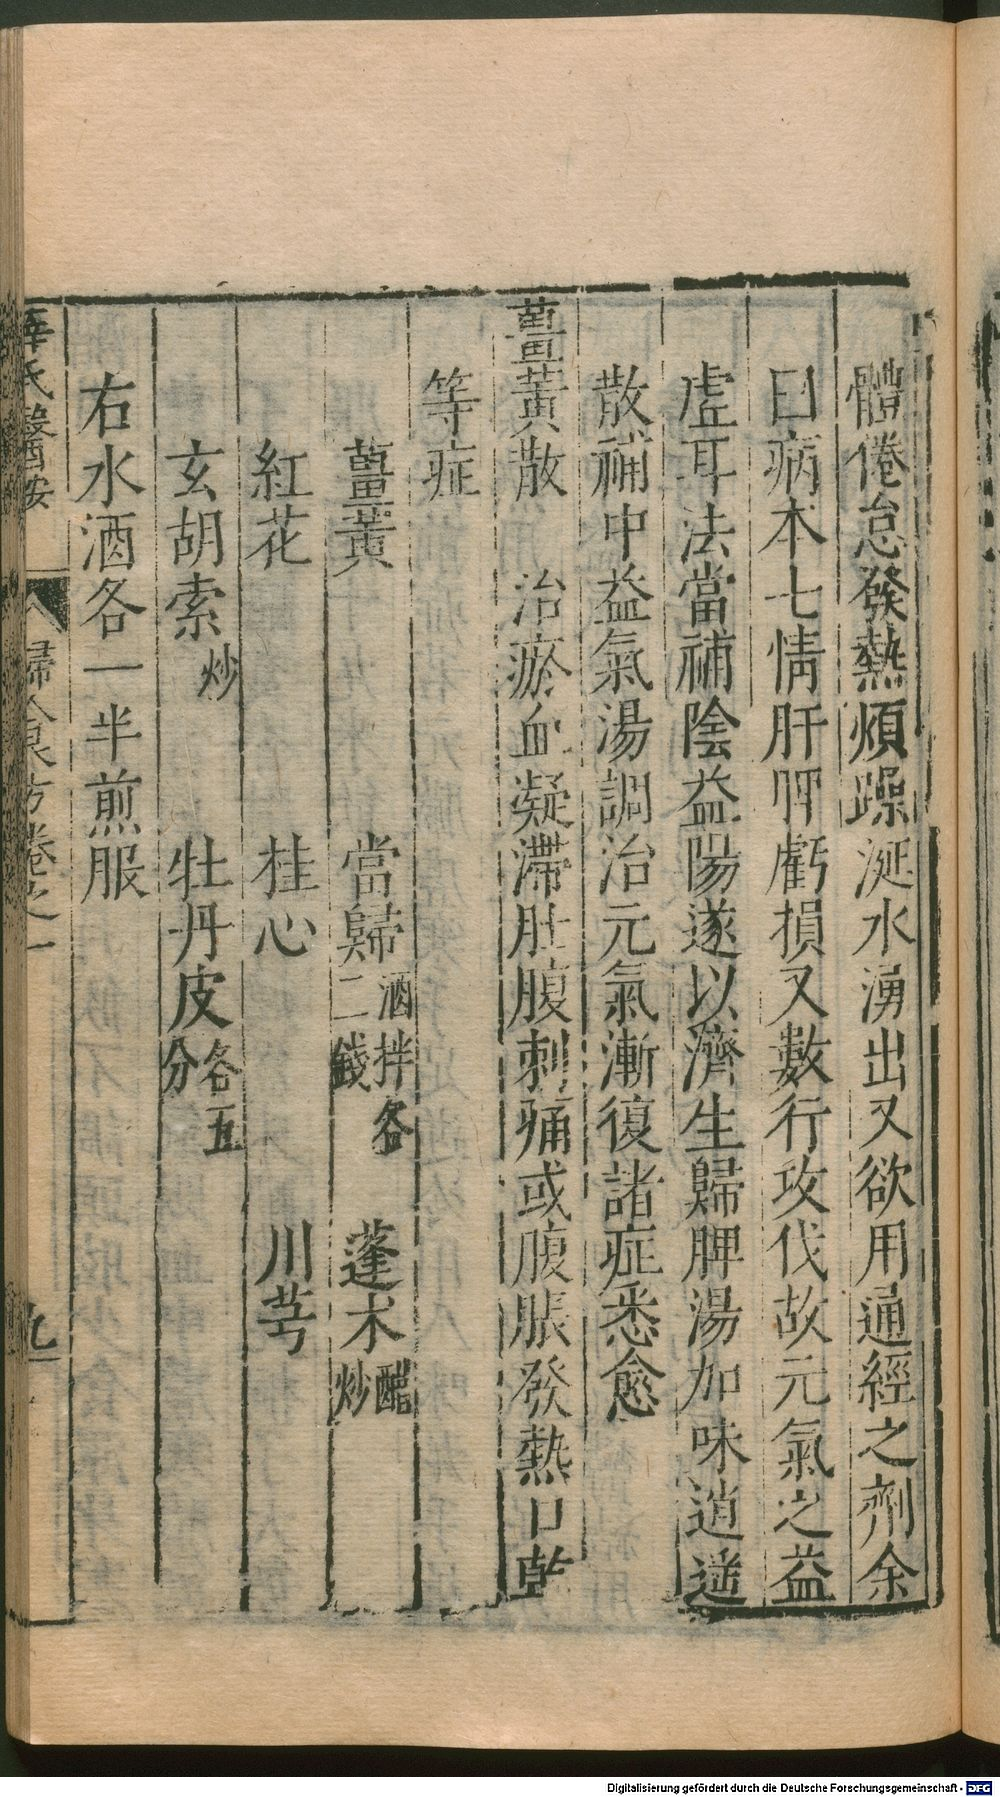 體倦怠發熱煩躁涎水湧出又欲用通經之劑余
曰病本七情肝脾虧損又數行攻伐故元氣之益
虛耳法當補陰益陽遂以濟生歸脾湯加味逍遥
散補中益氣湯調治元氣漸復諸症悉愈
薑黃散 治瘀血凝滯肚腹刺痛或腹脹發熱口乾
等症
薑黃 當歸酒拌各二錢 蓬朮醋炒
紅花 桂心 川芎
玄胡索炒 牡丹皮各五分
右水酒各一半煎服
薛氏醫按 婦人良方卷之一 九
Digitalisierung gefördert durch die Deutsche Forschungsgemeinschaft - DFG